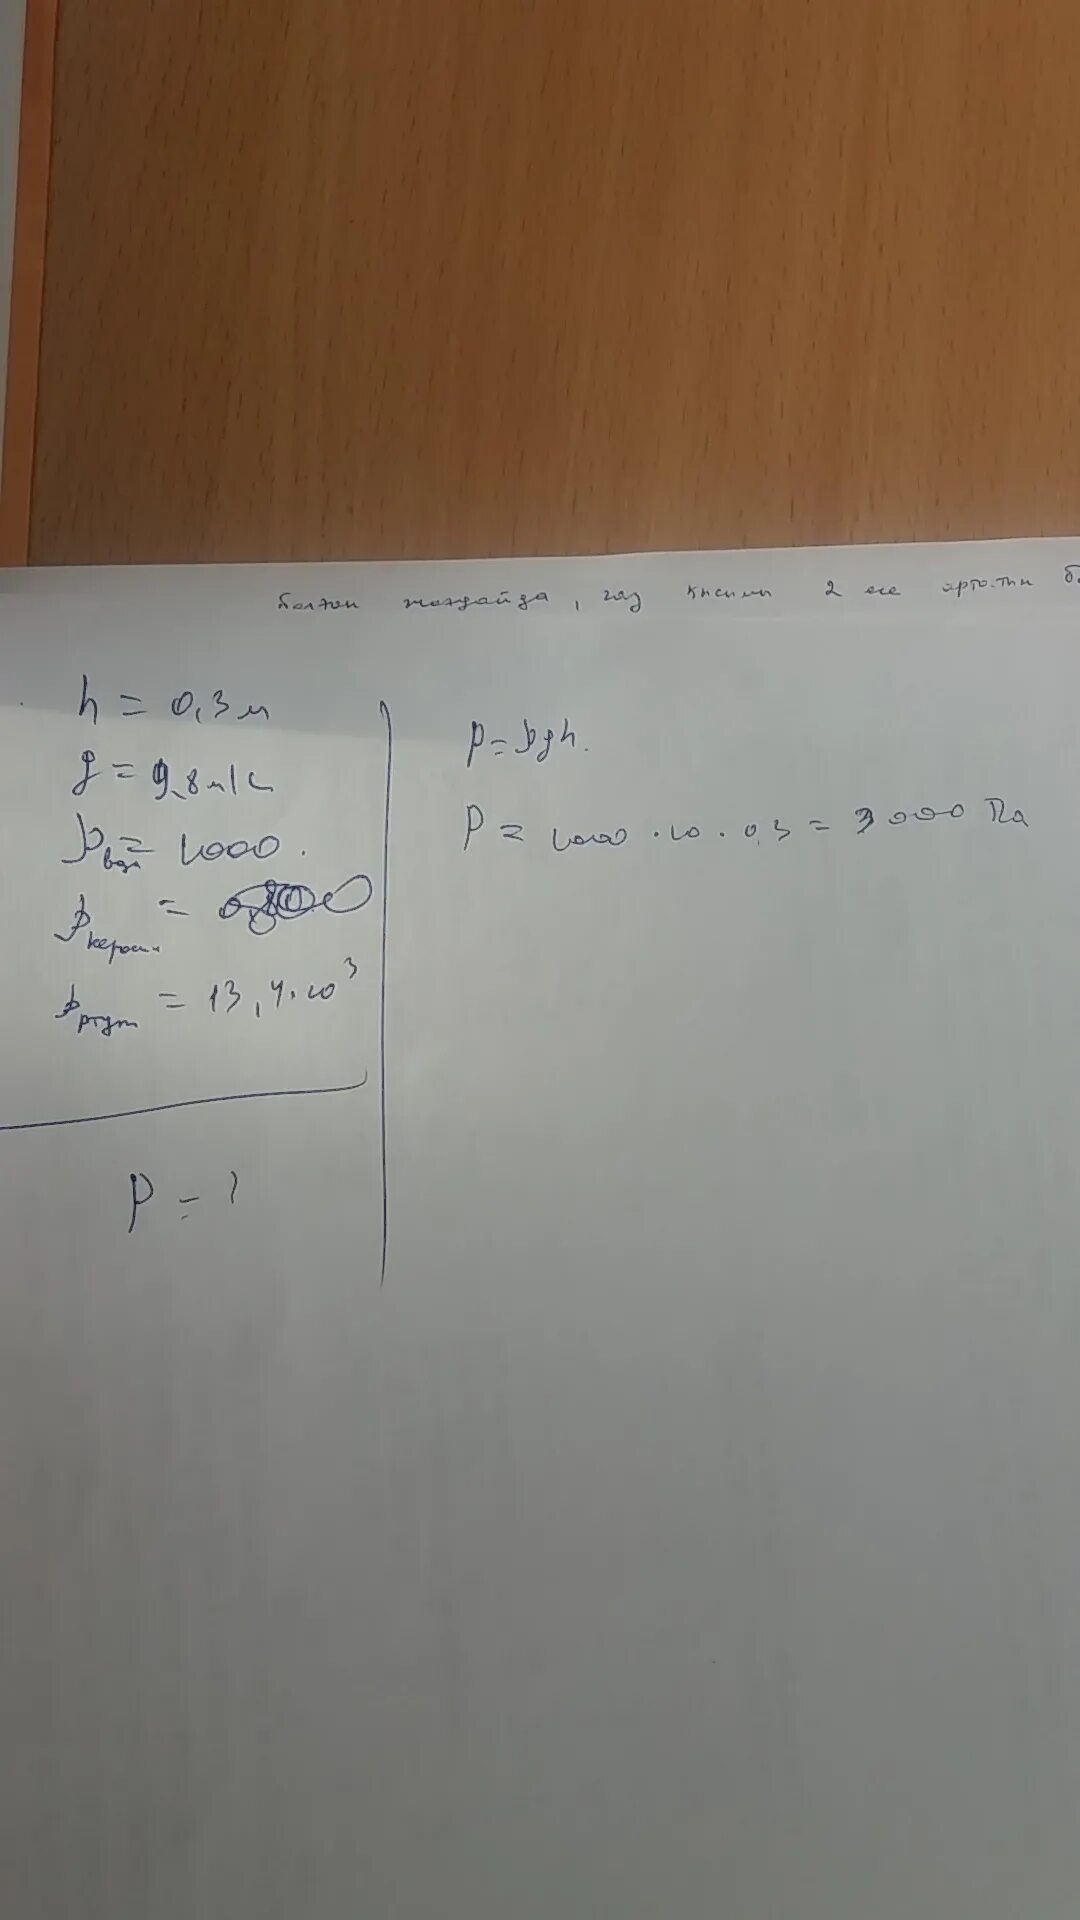 болған жағдайда, газ қысымы 2 есе артатын
h = 0,3 м
g = 9,8 м/с
ρвода = 1000.
ρкеросин =
ρртут = 13,4·10³
P = ?
P = ρgh.
P = 1000 · 10 · 0,3 = 3000 Па